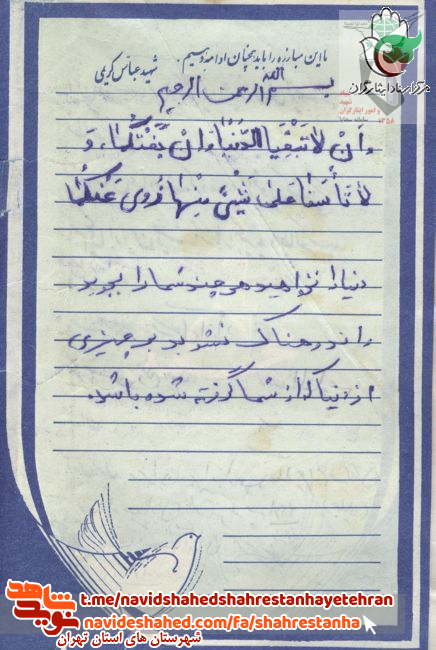 با این مبارزه را باید همچنان ادامه دهیم.
شهید عباس کریمی
بسم الله الرحمن الرحیم
وَاَنْ لاٰ تَبْغِیَا الدُّنْیٰا وَاِنْ بَغَتْکُمٰا، وَ
لاٰ تَأسَفٰا عَلیٰ شَیْئٍ مِنْهٰا زُوِیَ عَنْکُمٰا
دنیا را نخواهید هر چند شما را بجوید
و اندوهناک نشوید بر چیزی
از دنیا که از شما گرفته شده باشد.
مرکز اسناد ایثارگران
شهید
و امور ایثارگران
۱۳۵۸
نوید شاهد
t.me/navidshahedshahrestanhayetehran
navideshahed.com/fa/shahrestanha
شهرستان های استان تهران